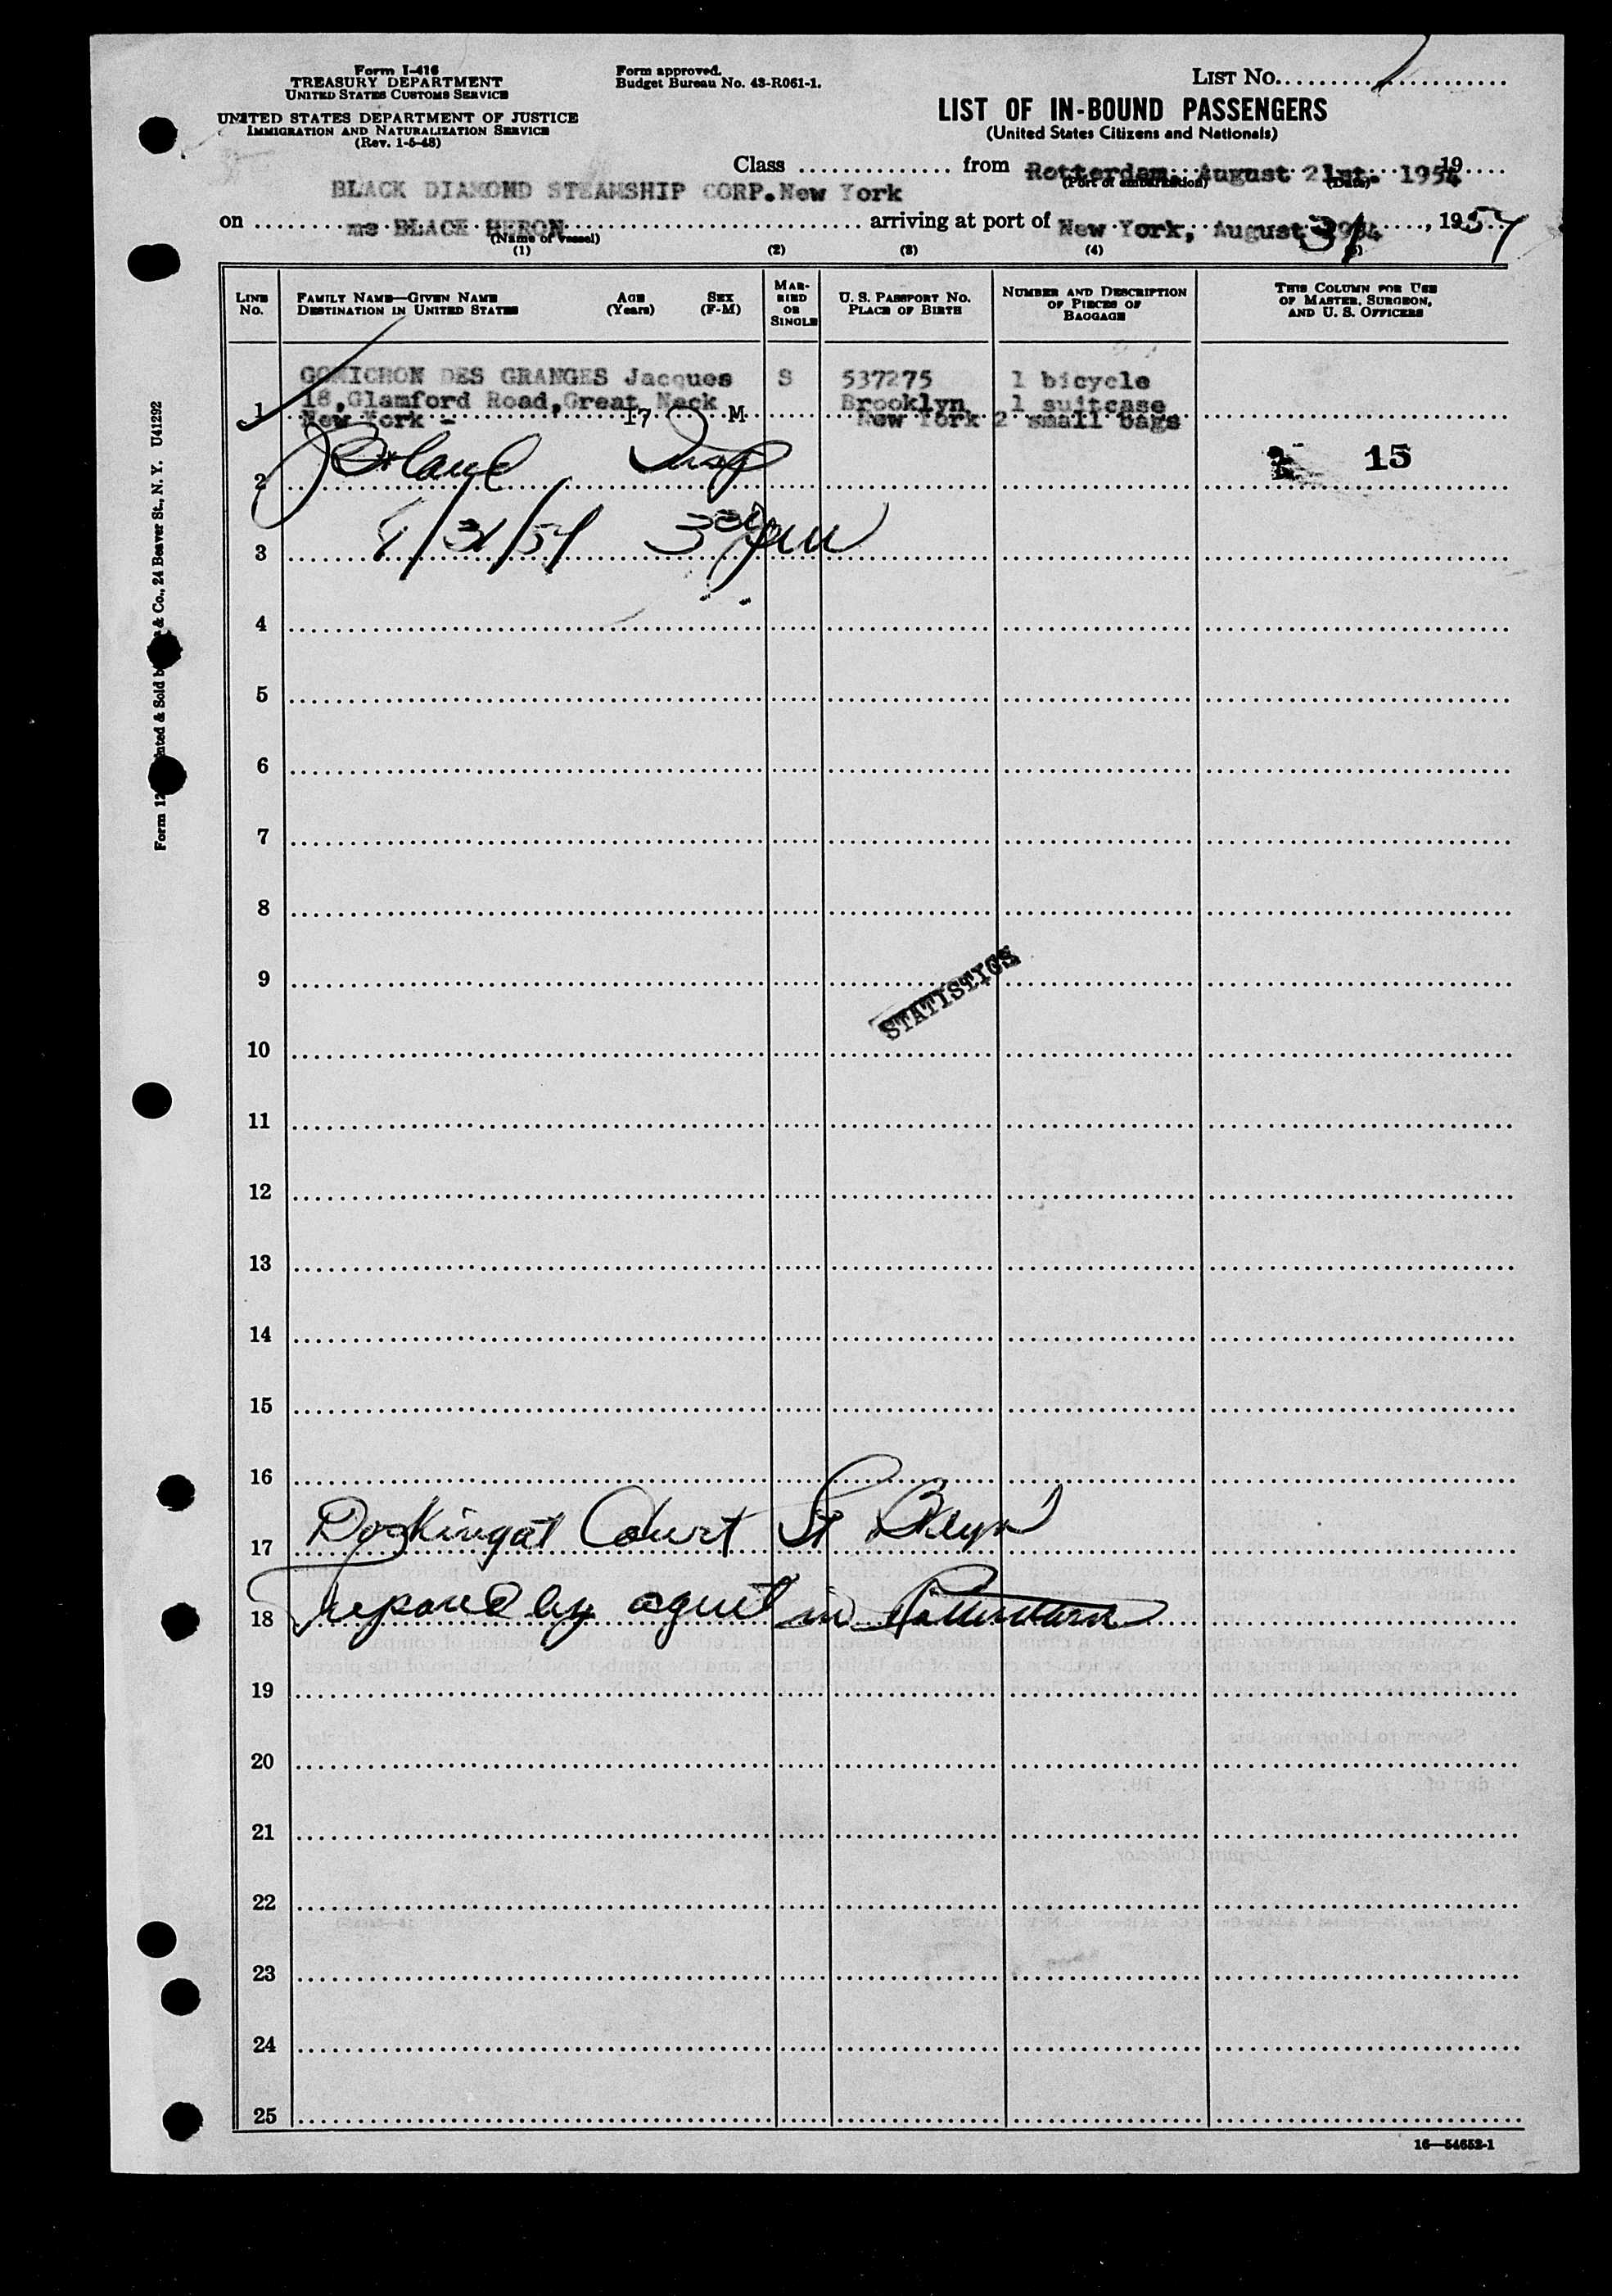 Form I-416
TREASURY DEPARTMENT
UNITED STATES CUSTOMS SERVICE
UNITED STATES DEPARTMENT OF JUSTICE
IMMIGRATION AND NATURALIZATION SERVICE
(Rev. 1-5-48)
Form approved.
Budget Bureau No. 43-R061-1.
LIST NO. 1
LIST OF IN-BOUND PASSENGERS
(United States Citizens and Nationals)
Class from Rotterdam, August 21st. 1954 19
(Port of embarkation) (Date)
BLACK DIAMOND STEAMSHIP CORP. New York
on ms BLACK HERON arriving at port of New York, August 31 1954, 1954
(Name of vessel)
(1) (2) (3) (4) (5)
LINE NO.
FAMILY NAME—GIVEN NAME
DESTINATION IN UNITED STATES
AGE (Years)
SEX (F-M)
MARRIED OR SINGLE
U. S. PASSPORT NO.
PLACE OF BIRTH
NUMBER AND DESCRIPTION OF PIECES OF BAGGAGE
THIS COLUMN FOR USE OF MASTER, SURGEON, AND U. S. OFFICERS
GOMICHON DES GRANGES Jacques S 537275 1 bicycle
1 18,Glamford Road,Great Neck Brooklyn 1 suitcase
New York - 17 M New York 2 small bags
2 Insp 15
3 8/31/54 3 30 pm
4
5
6
7
8
9
STATISTICS
10
11
12
13
14
15
16
17 Docking at Court St Bklyn
18 Prepared by agent in Rotterdam
19
20
21
22
23
24
25
16—54652-1
Form 12 & Co., 24 Beaver St., N. Y. U41292